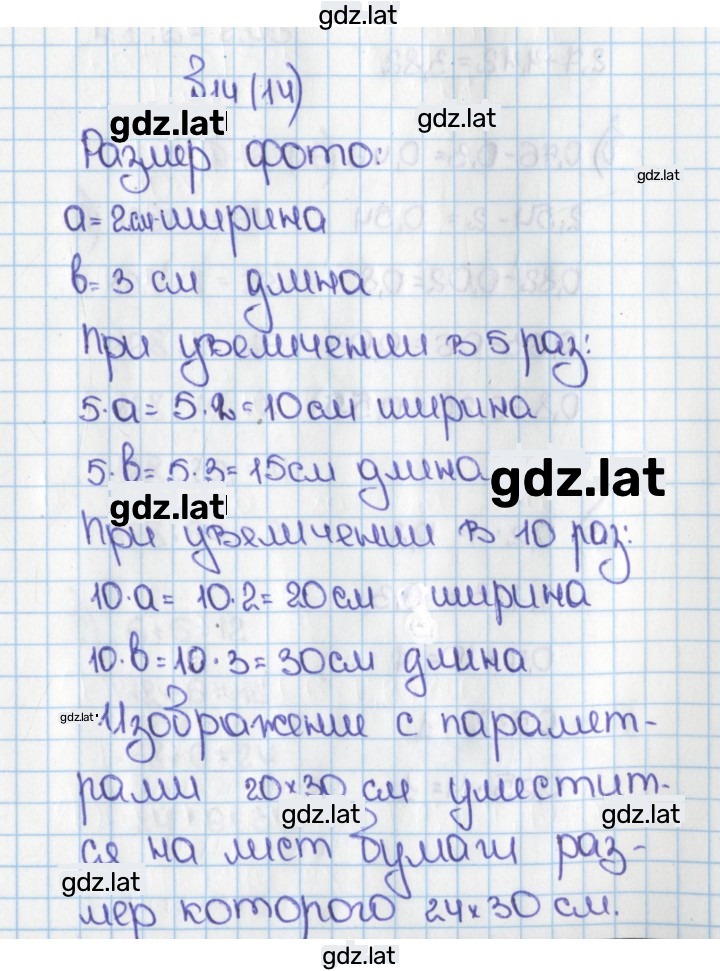 gdz.lat
314 (14)
gdz.lat
gdz.lat
Размер фото:
gdz.lat
a = 2см ширина
в = 3 см длина
При увеличении в 5 раз:
5·a = 5·2 = 10см ширина
5·в = 5·3 = 15см длина
gdz.lat
gdz.lat
При увеличении в 10 раз:
10·a = 10·2 = 20см ширина
10·в = 10·3 = 30см длина
gdz.lat
Изображение с парамет-
рами 20×30 см уместит-
gdz.lat
gdz.lat
ся на лист бумаги раз-
gdz.lat
мер которого 24×30 см.
gdz.lat